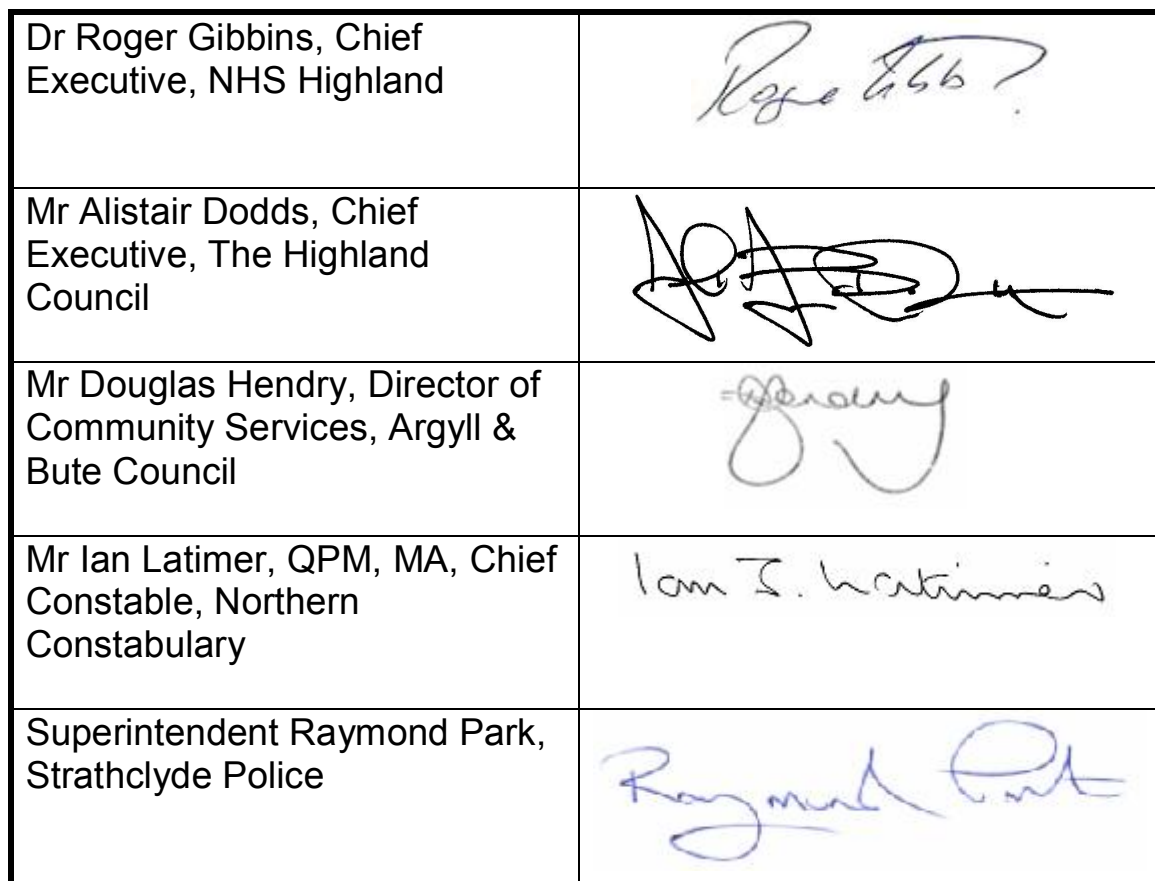 Dr Roger Gibbins, Chief
Executive, NHS Highland
Mr Alistair Dodds, Chief
Executive, The Highland
Council
Mr Douglas Hendry, Director of
Community Services, Argyll &
Bute Council
Mr Ian Latimer, QPM, MA, Chief
Constable, Northern
Constabulary
Ian J. Latimer
Superintendent Raymond Park,
Strathclyde Police
Raymond Park